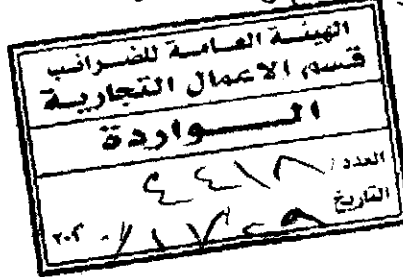 الهيئة العامة للضرائب
قسم الاعمال التجارية
الـــــواردة
العدد / ٤٤١٨
التاريخ